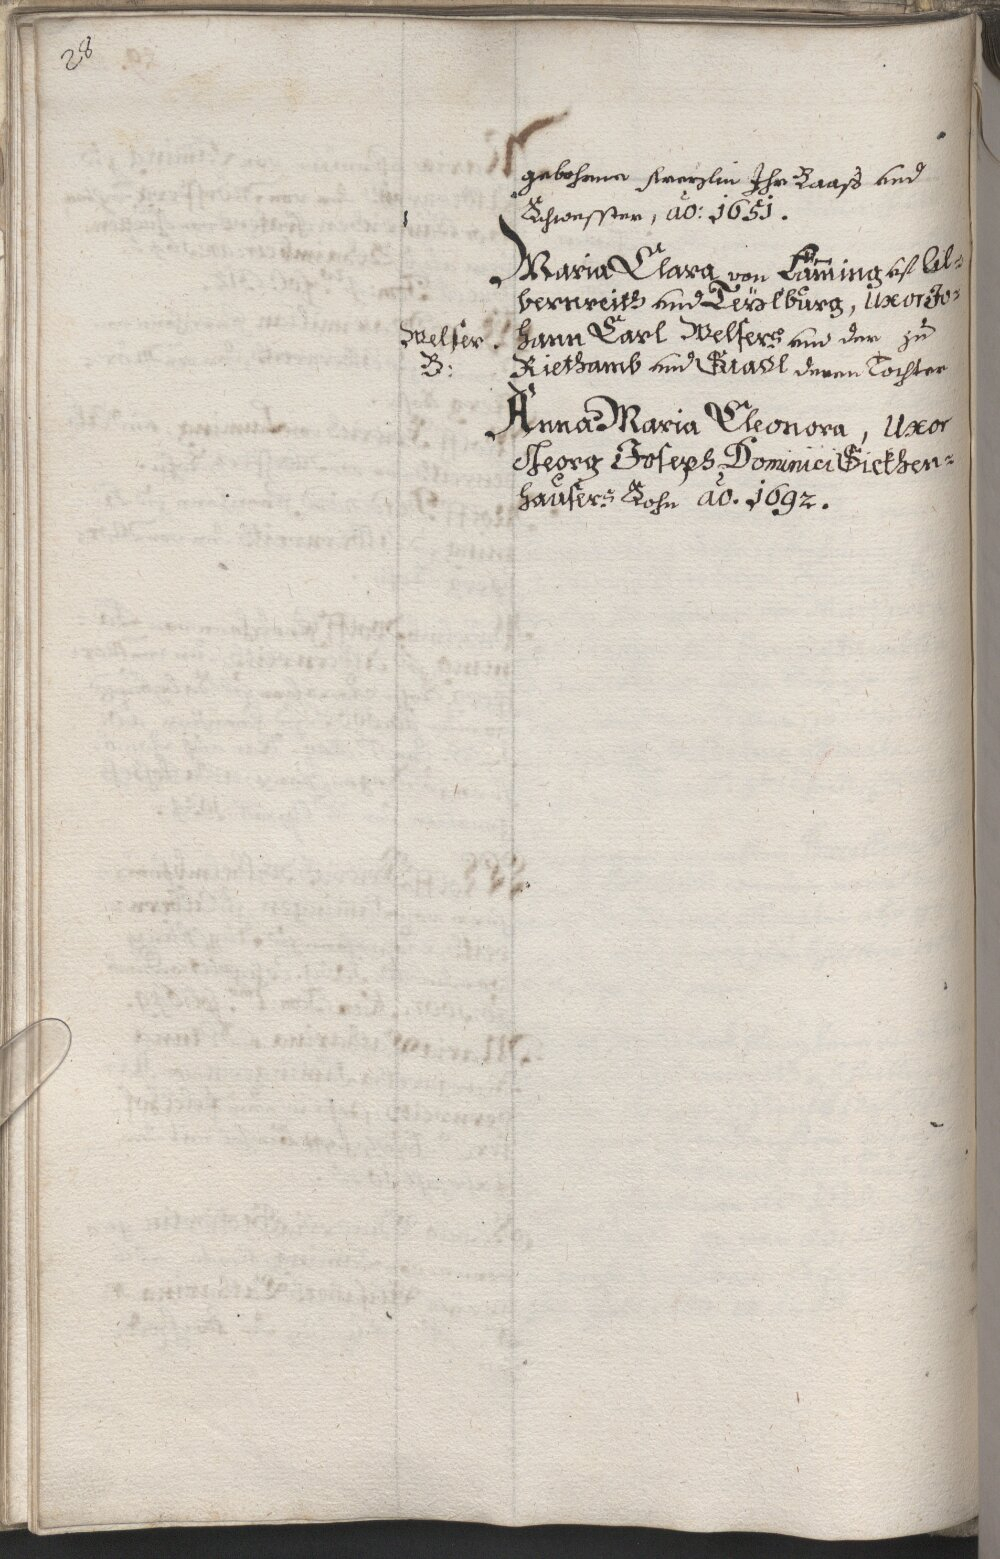 28
gebohrne Ihr Baaß und
Schwester, ao: 1651.
Maria Clara von Lam̄ing uf Al=
bernreith und Terzlburg, Uxor Jo=
Welser. hann Carl Welsers und der zu
B: Riethamb und Stadl deren Tochter
Anna Maria Eleonora, Uxor
Georg Joseph Dominici Giekhen=
hausers Sohn ao. 1692.